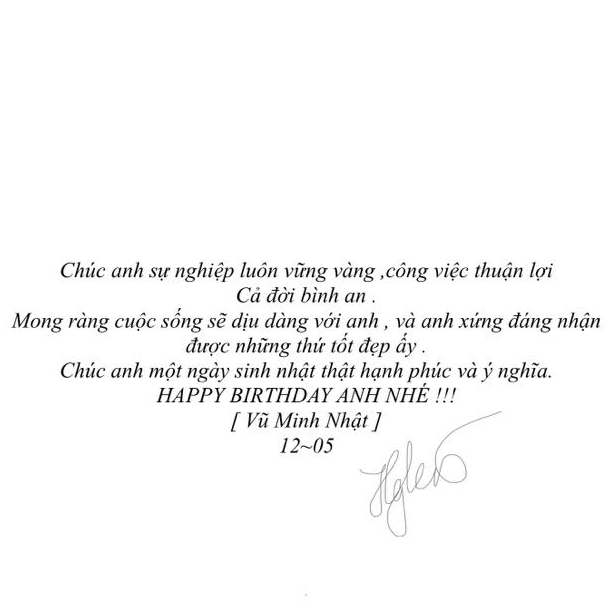 Chúc anh sự nghiệp luôn vững vàng ,công việc thuận lợi
Cả đời bình an .
Mong ràng cuộc sống sẽ dịu dàng với anh , và anh xứng đáng nhận
được những thứ tốt đẹp ấy .
Chúc anh một ngày sinh nhật thật hạnh phúc và ý nghĩa.
HAPPY BIRTHDAY ANH NHÉ !!!
[ Vũ Minh Nhật ]
12~05